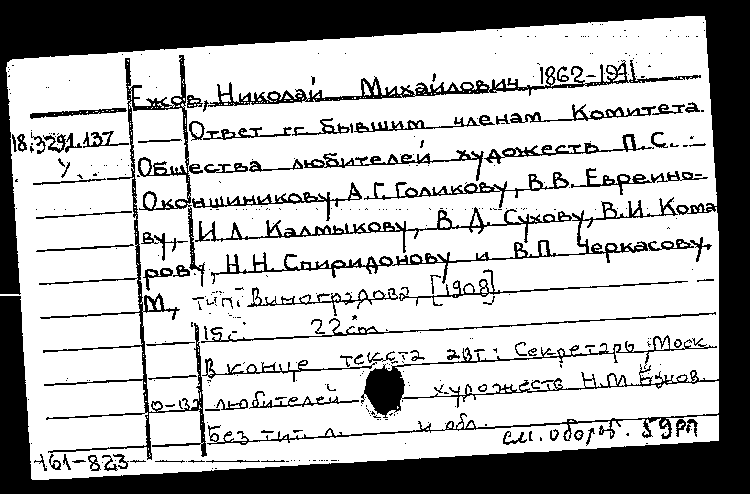 Ежов, Николай Михайлович, 1862-1941.
18.3291.137
Ответ гг бывшим членам Комитета
У
Общества любителей художеств П.С.
Оконишникову, А.Г. Голикову, В.В. Евреино-
ву, И.Л. Калмыкову, В.Д. Сухову, В.И. Кома
рову, Н.Н. Спиридонову и В.П. Черкасову.
М., тип. Виноградова, [1908].
15с. 22cm
В конце текста авт: Секретарь Моск
0-132 любителей художеств Н.М. Ежов.
Без тит. л. и обл.
см. оборот.
161-823